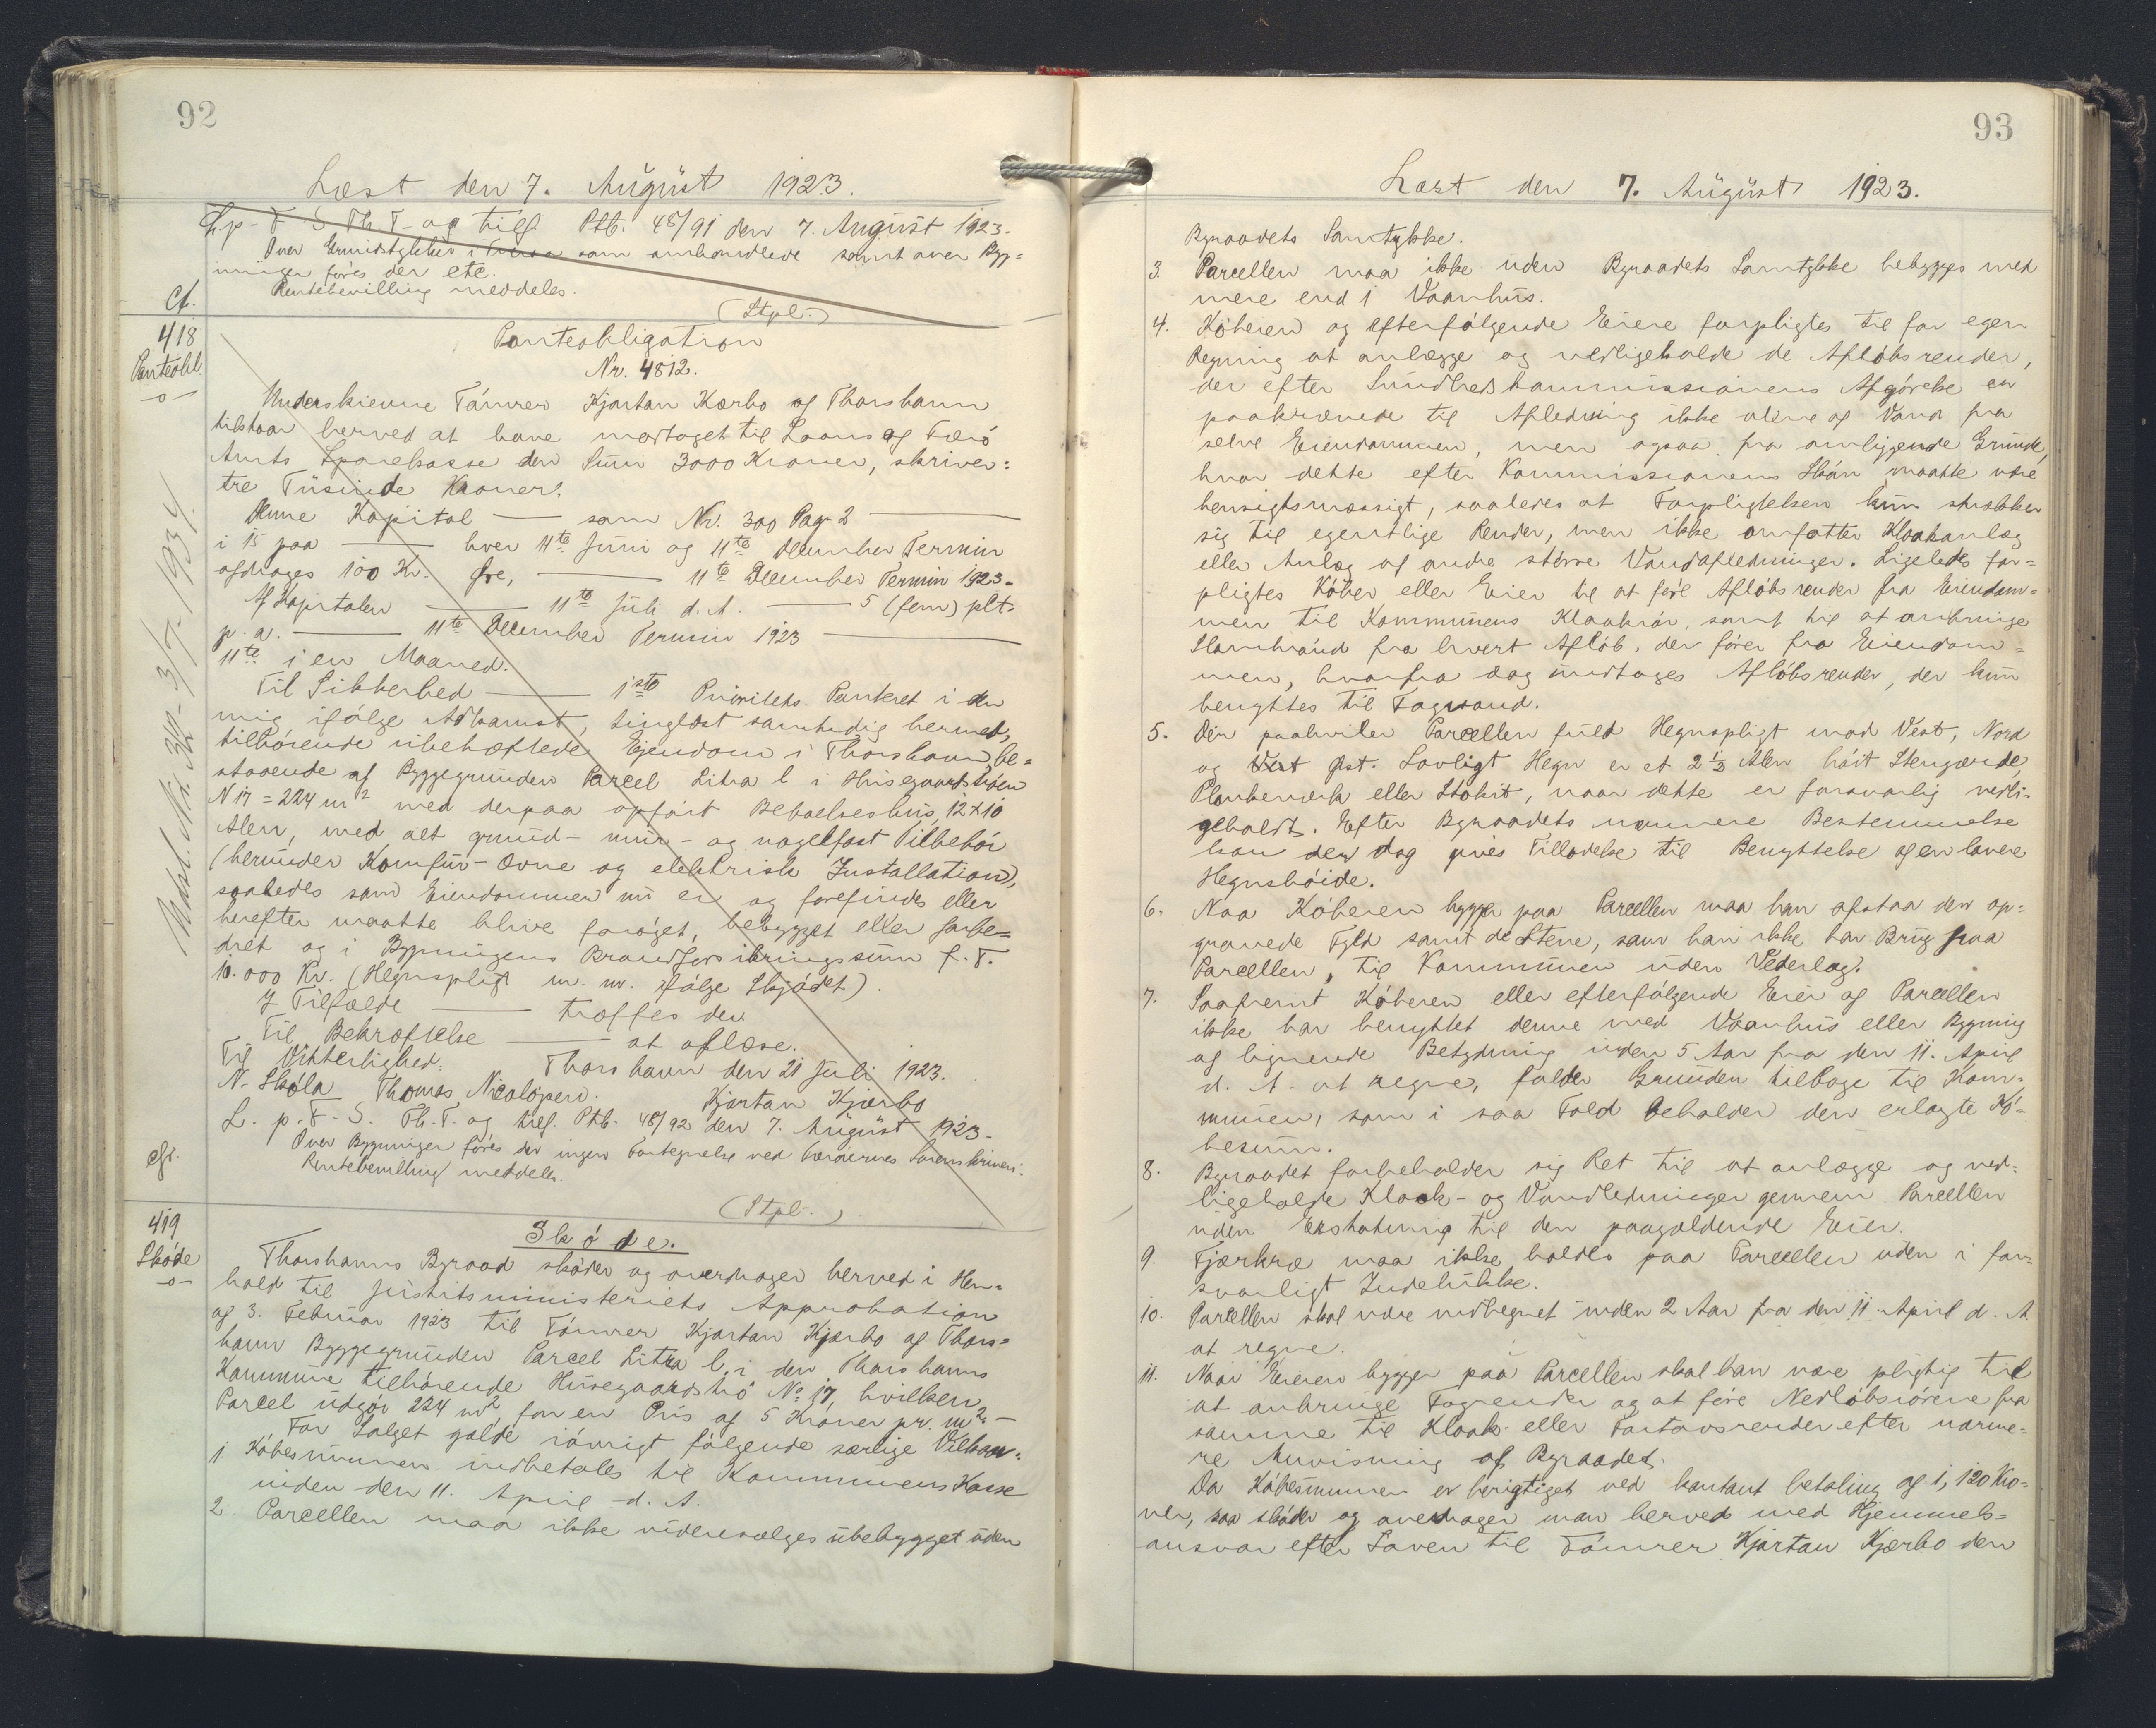 92
Læst den 7. August 1923.
L. p. F. S. Th. T. og tilf. Ptb. 48/91 den 7. August 1923.
Over Grundstykker i som omhandlede samt over Byg=
ninger føres der etc.
Rentebevilling meddeles.
Cf.
(Stpl.)
418
Panteobl.
Panteobligation
Nr. 4812.
Underskrevne Tømrer Kjartan Kærbo af Thorshavn
tilstaar herved at have modtaget til Laans af Færø
Amts Sparekasse den Sum 3000 Kroner, skriver:
tre Tusinde Kroner.
Denne Kapital — som Nr. 300 Pag 2 —
i 15 paa — hver 11te Juni og 11te December Termin
afdrages 100 Kr. Øre, — 11te December Termin 1923.
Af Kapitalen — 11te Juli d. A. — 5 (fem) pCt.
p. a. — 11te December Termin 1923 —
11te i en Maaned.
Til Sikkerhed — 1ste Prioritets Panteret i den
mig ifølge Adkomst, tinglæst samtidig hermed,
tilhørende ubehæftede Ejendom i Thorshavn, be=
staaende af Byggegrunden Parcel Litra l i Husegaardstrøen
N 17 = 224 m² med derpaa opført Beboelseshus, 12 x 10
Alen, med alt grund- mur- og nagelfast Tilbehør
(herunder Komfur- Ovne og elektrisk Installation),
saaledes som Eiendommen nu er og forefindes eller
herefter maatte blive forøget, bebygget eller forbe=
dret og i Bygningens Brandforsikringssum f. T.
10.000 Kr. (Hegnspligt m. m. ifølge Skjødet).
I Tilfælde — træffes den
Til Bekræftelse — at aflæse.
Thorshavn den 21 Juli 1923.
Til Vitterlighed:
N. Skåla Thomas Nicolajsen. Kjartan Kjærbo
L. p. F. S. Th. T. og tref. Ptb. 48/92 den 7. August 1923.
Over Bygninger føres der ingen Fortegnelse ved Færøernes Sorenskriveri.
Rentebevilling meddeles.
cfr.
(Stpl.)
Udsl. Nr. 32 - 3/7. 1934.
419
Skøde
Skøde.
Thorshavns Byraad skøder og overdrager herved i Hen=
hold til Justitsministeriets Approbation
af 3. Februar 1923 til Tømrer Kjartan Kjærbo af Thors=
havn Byggegrunden Parcel Litra l, i den Thorshavns
Kommune tilhørende Husegaardstrø No 17, hvilken
Parcel udgør 224 m² for en Pris af 5 Kroner pr. m². —
For Salget gælde iøvrigt følgende særlige Vilkaar:
1. Købesummen indbetales til Kommunens Kasse
inden den 11. April d. A.
2. Parcellen maa ikke videresælges ubebygget uden
93
Læst den 7. August 1923.
Byraadets Samtykke.
3. Parcellen maa ikke uden Byraadets Samtykke bebygges med
mere end 1 Vaanhus.
4. Køberen og efterfølgende Eiere forpligtes til for egen
Regning at anlægge og vedligeholde de Afløbsrender,
der efter Sundhedskommissionens Afgørelse er
paakrævede til Afledning ikke alene af Vand fra
selve Eiendommen, men ogsaa fra omliggende Grunde,
hvor dette efter Kommissionens Skøn maatte være
hensigtsmæssigt, saaledes at Forpligtelsen kun strækker
sig til egentlige Render, men ikke omfatter Kloakanlæg
eller Anlæg af andre større Vandafledninger. Ligeledes for=
pligtes Køber eller Eier til at føre Afløbsrender fra Eiendom=
men til Kommunens Kloakrør, samt til at anbringe
Slambrønd fra hvert Afløb, der fører fra Eiendom=
men, hvorfra dog undtages Afløbsrender, der kun
benyttes til Tagvand.
5. Der paahviler Parcellen fuld Hegnspligt mod Vest, Nord
og Vest Øst. Lovligt Hegn er et 2 1/2 Alen høit Stengærde,
Plankeværk eller Stakit, naar dette er forsvarlig vedli=
geholdt. Efter Byraadets nærmere Bestemmelse
kan der dog gives Tilladelse til Benyttelse af en lavere
Hegnshøide.
6. Naa Køberen bygger paa Parcellen maa han afstaa den op=
gravede Fyld samt de Stene, som han ikke har Brug for paa
Parcellen, til Kommunen uden Vederlag.
7. Saafremt Køberen eller efterfølgende Eier af Parcellen
ikke har benyttet denne med Vaanhus eller Bygning
af lignende Betydning inden 5 Aar fra den 11. April
d. A. at regne, falder Grunden tilbage til Kom=
munen, som i saa Fald beholder den erlagte Kø=
besum.
8. Byraadet forbeholder sig Ret til at anlægge og ved=
ligeholde Kloak- og Vandledninger gennem Parcellen
uden Erstatning til den paagældende Eier.
9. Fjærkræ maa ikke holdes paa Parcellen uden i for=
svarligt Indelukke.
10. Parcellen skal være indhegnet inden 2 Aar fra den 11. April d. A
at regne.
11. Naar Eieren bygger paa Parcellen skal han være pligtig til
at anbringe Tagrender og at føre Nedløbsrørene fra
samme til Kloak- eller Fortovsrender efter nærme=
re Anvisning af Byraadet.
Da Købesummen er berigtiget ved kontant betaling af 1,120 Kro=
ner, saa skøder og overdrager man herved med Hjemmels=
ansvar efter Loven til Tømrer Kjartan Kjærbo den